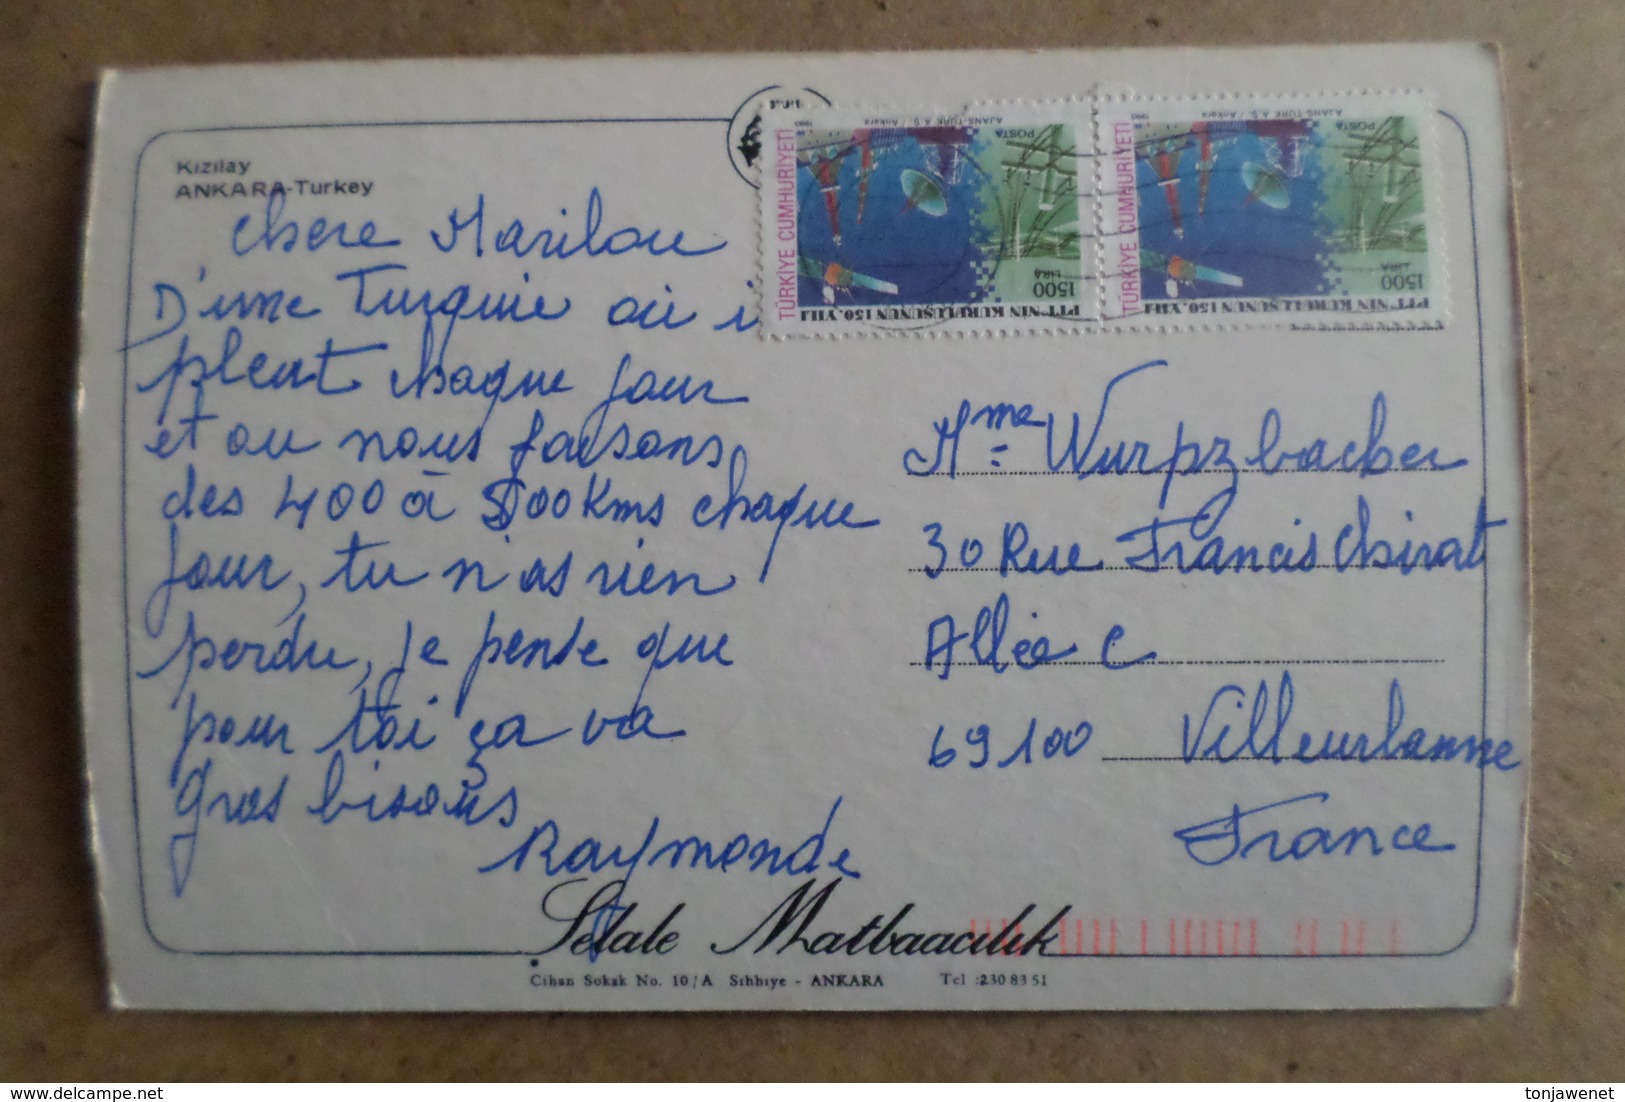 Kızılay
ANKARA-Turkey
Chere Marilou
D'une Turquie où i
pleut chaque jour
et ou nous faisons
des 400 à 500 Kms chaque
jour, tu n'as rien
perdu, je pense que
pour toi ça va
Gros bisous
Raymonde
TÜRKİYE CUMHURİYETİ
1990
AJANS-TÜRK A.Ş. / Ankara
POSTA
1500
LİRA
PTT'NİN KURULUŞUNUN 150. YILI
TÜRKİYE CUMHURİYETİ
1990
AJANS-TÜRK A.Ş. / Ankara
POSTA
1500
LİRA
PTT'NİN KURULUŞUNUN 150. YILI
Mme Wurpzbacher
30 Rue Francis Chirat
Allée C
69100 Villeurbanne
France
Şelale Matbaacılık
Cihan Sokak No. 10/A Sıhhıye - ANKARA Tel :230 83 51
delcampe.net
tonjawenet